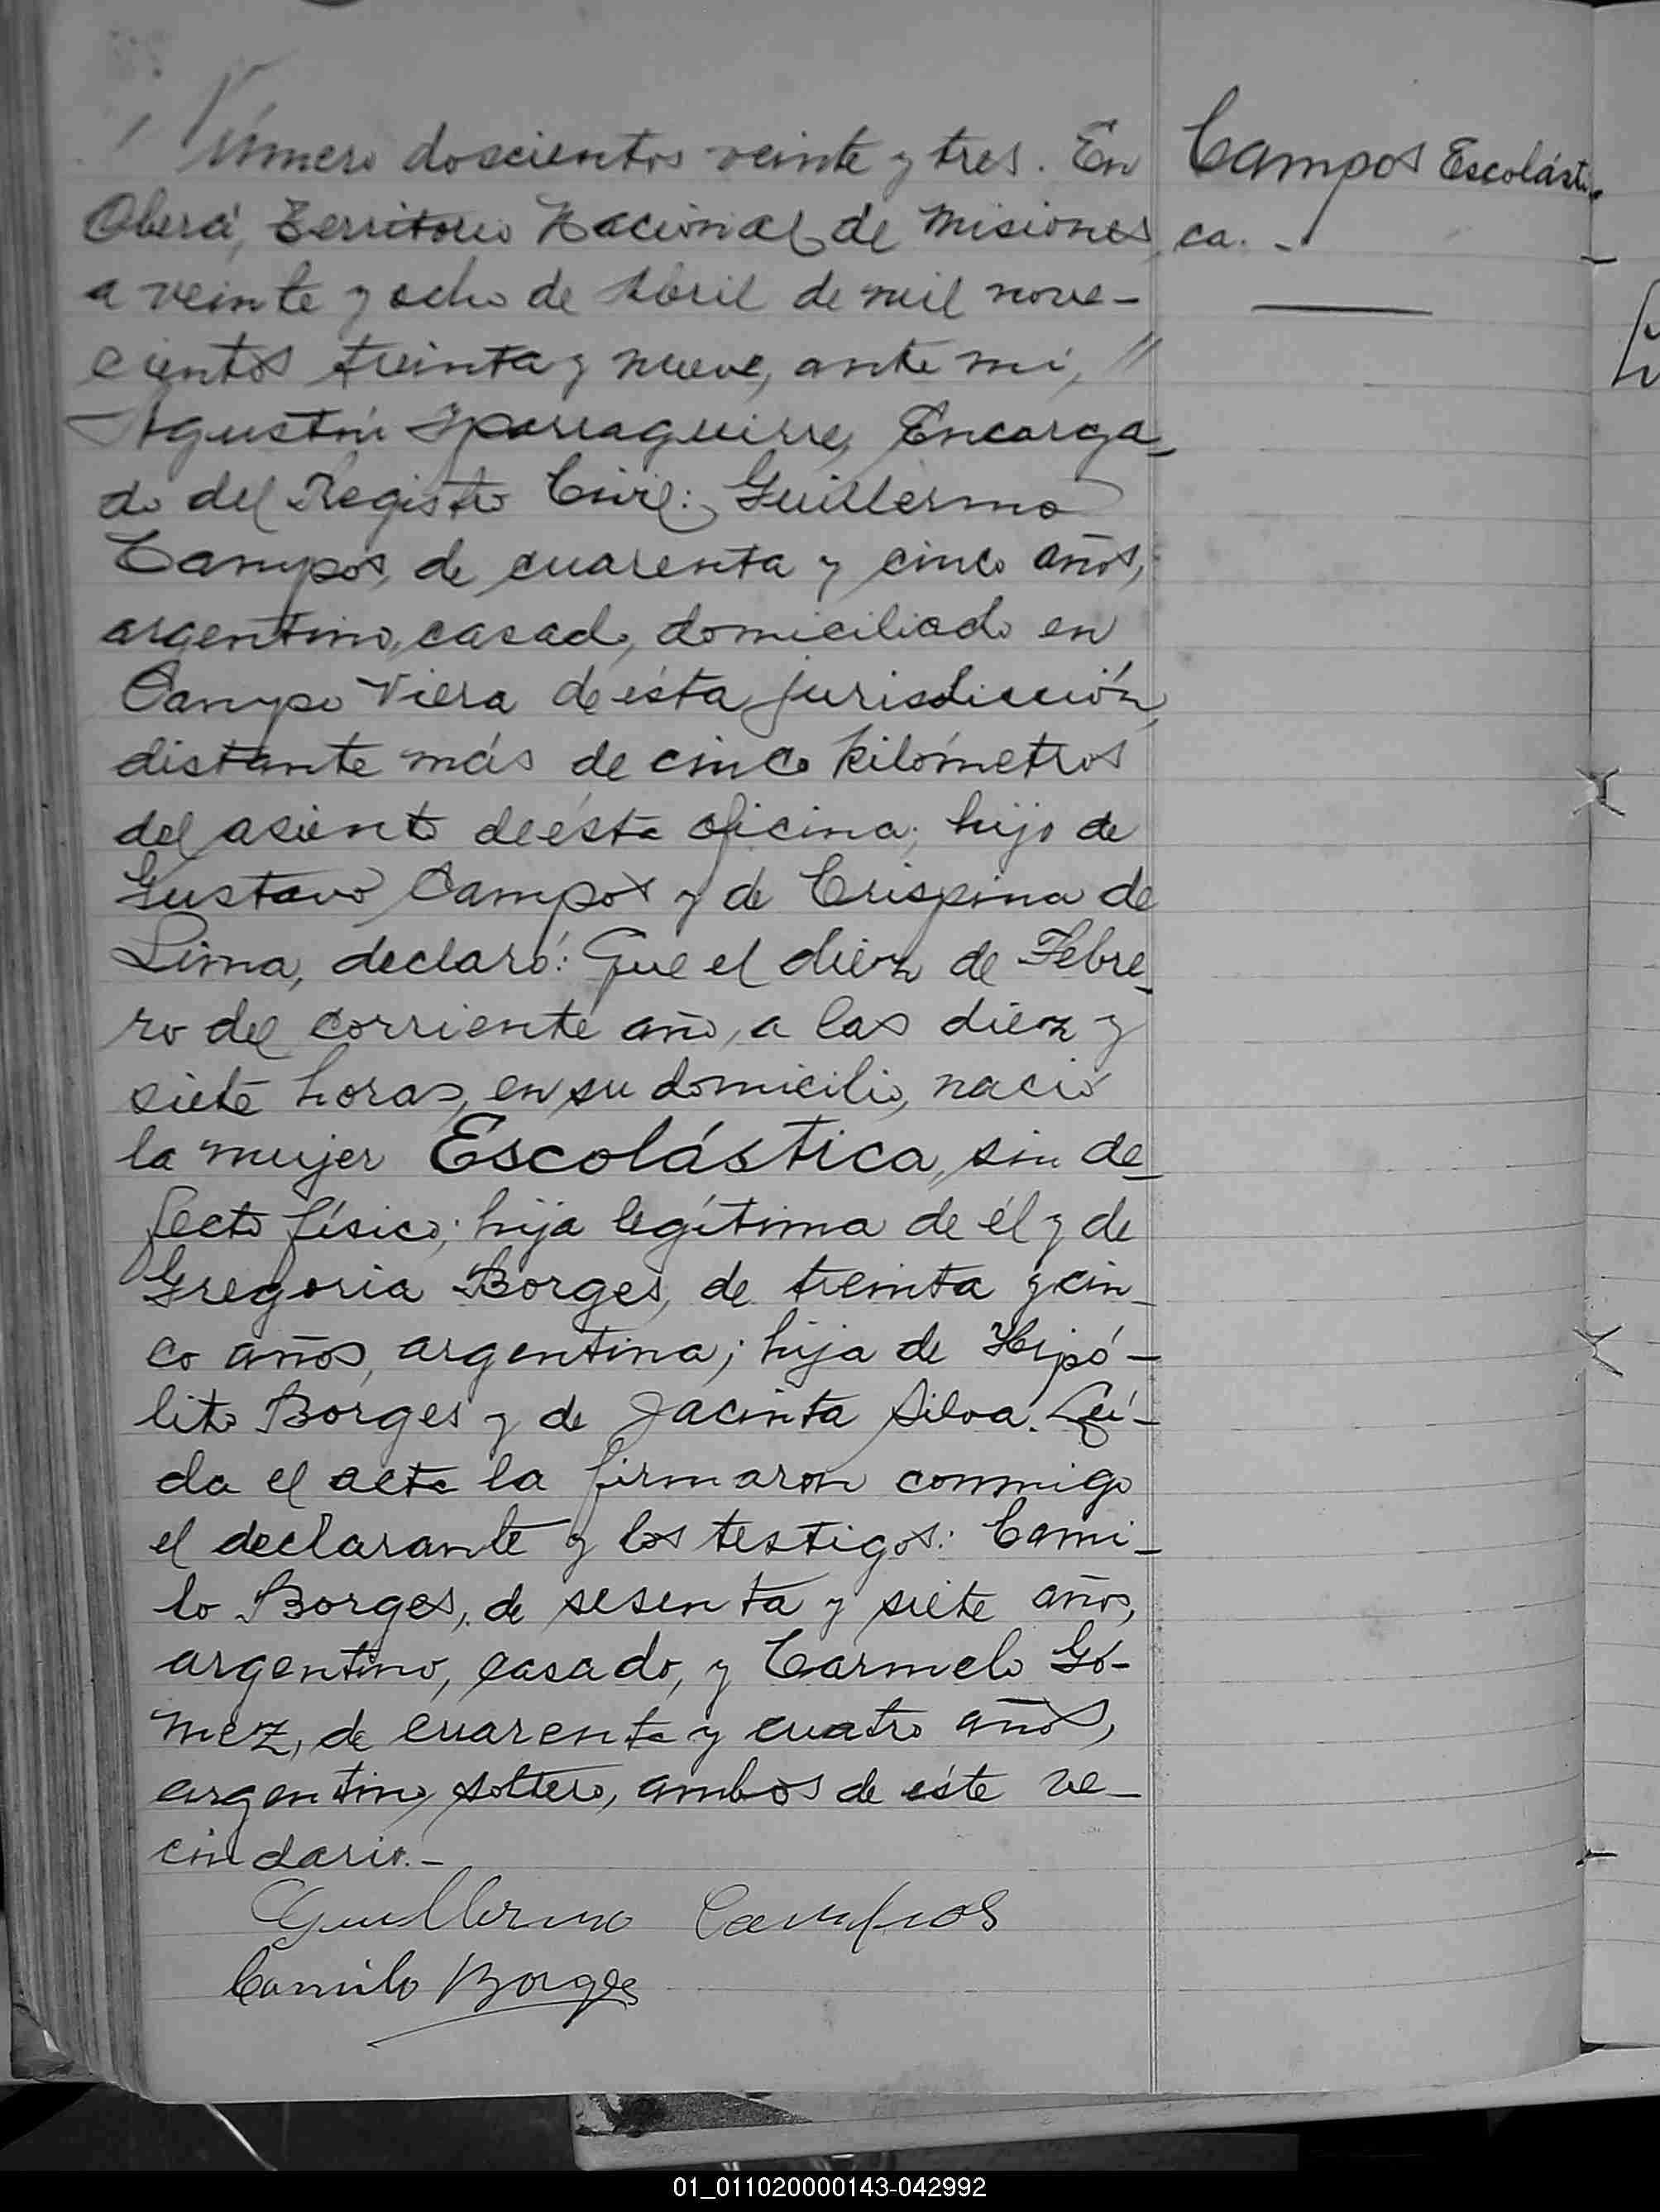 Número doscientos veinte y tres. En
Oberá, Territorio Nacional de Misiones,
a veinte y ocho de Abril de mil nove-
cientos treinta y nueve, ante mí, //
Agustín Yparraguirre, Encarga-
do del Registro Civil: Guillermo
Campos, de cuarenta y cinco años,
argentino, casado, domiciliado en
Campo Viera de ésta jurisdicción,
distante más de cinco kilómetros
del asiento de ésta oficina; hijo de
Gustavo Campos y de Crispina de
Lima, declaró: Que el diez de Febre-
ro del corriente año, a las diez y
siete horas, en su domicilio, nació
la mujer Escolástica, sin de-
fecto físico; hija legítima de él y de
Gregoria Borges, de treinta y cin-
co años, argentina; hija de Hipó-
lito Borges y de Jacinta Silva. Leí-
da el acta la firmaron conmigo
el declarante y los testigos: Cami-
lo Borges, de sesenta y siete años,
argentino, casado, y Carmelo Gó-
mez, de cuarenta y cuatro años,
argentino, soltero, ambos de éste ve-
cindario.-
Guillermo Campos
Camilo Borges
Campos Escolásti-
ca.-
01_011020000143-042992